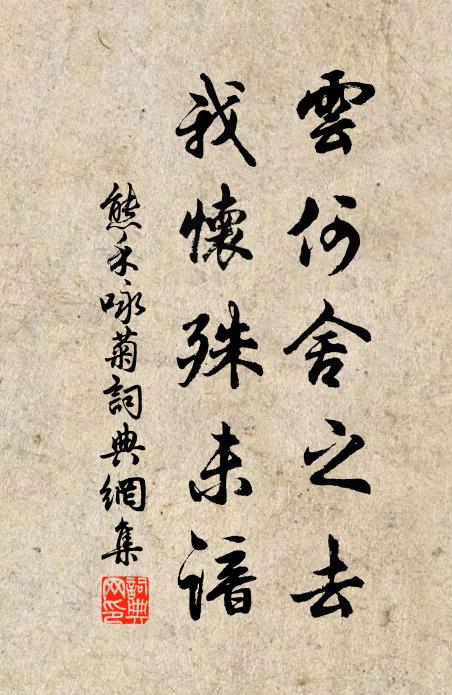 雲何舍之去
我懷殊未諳
熊禾詠菊詞典網集
詞典網印